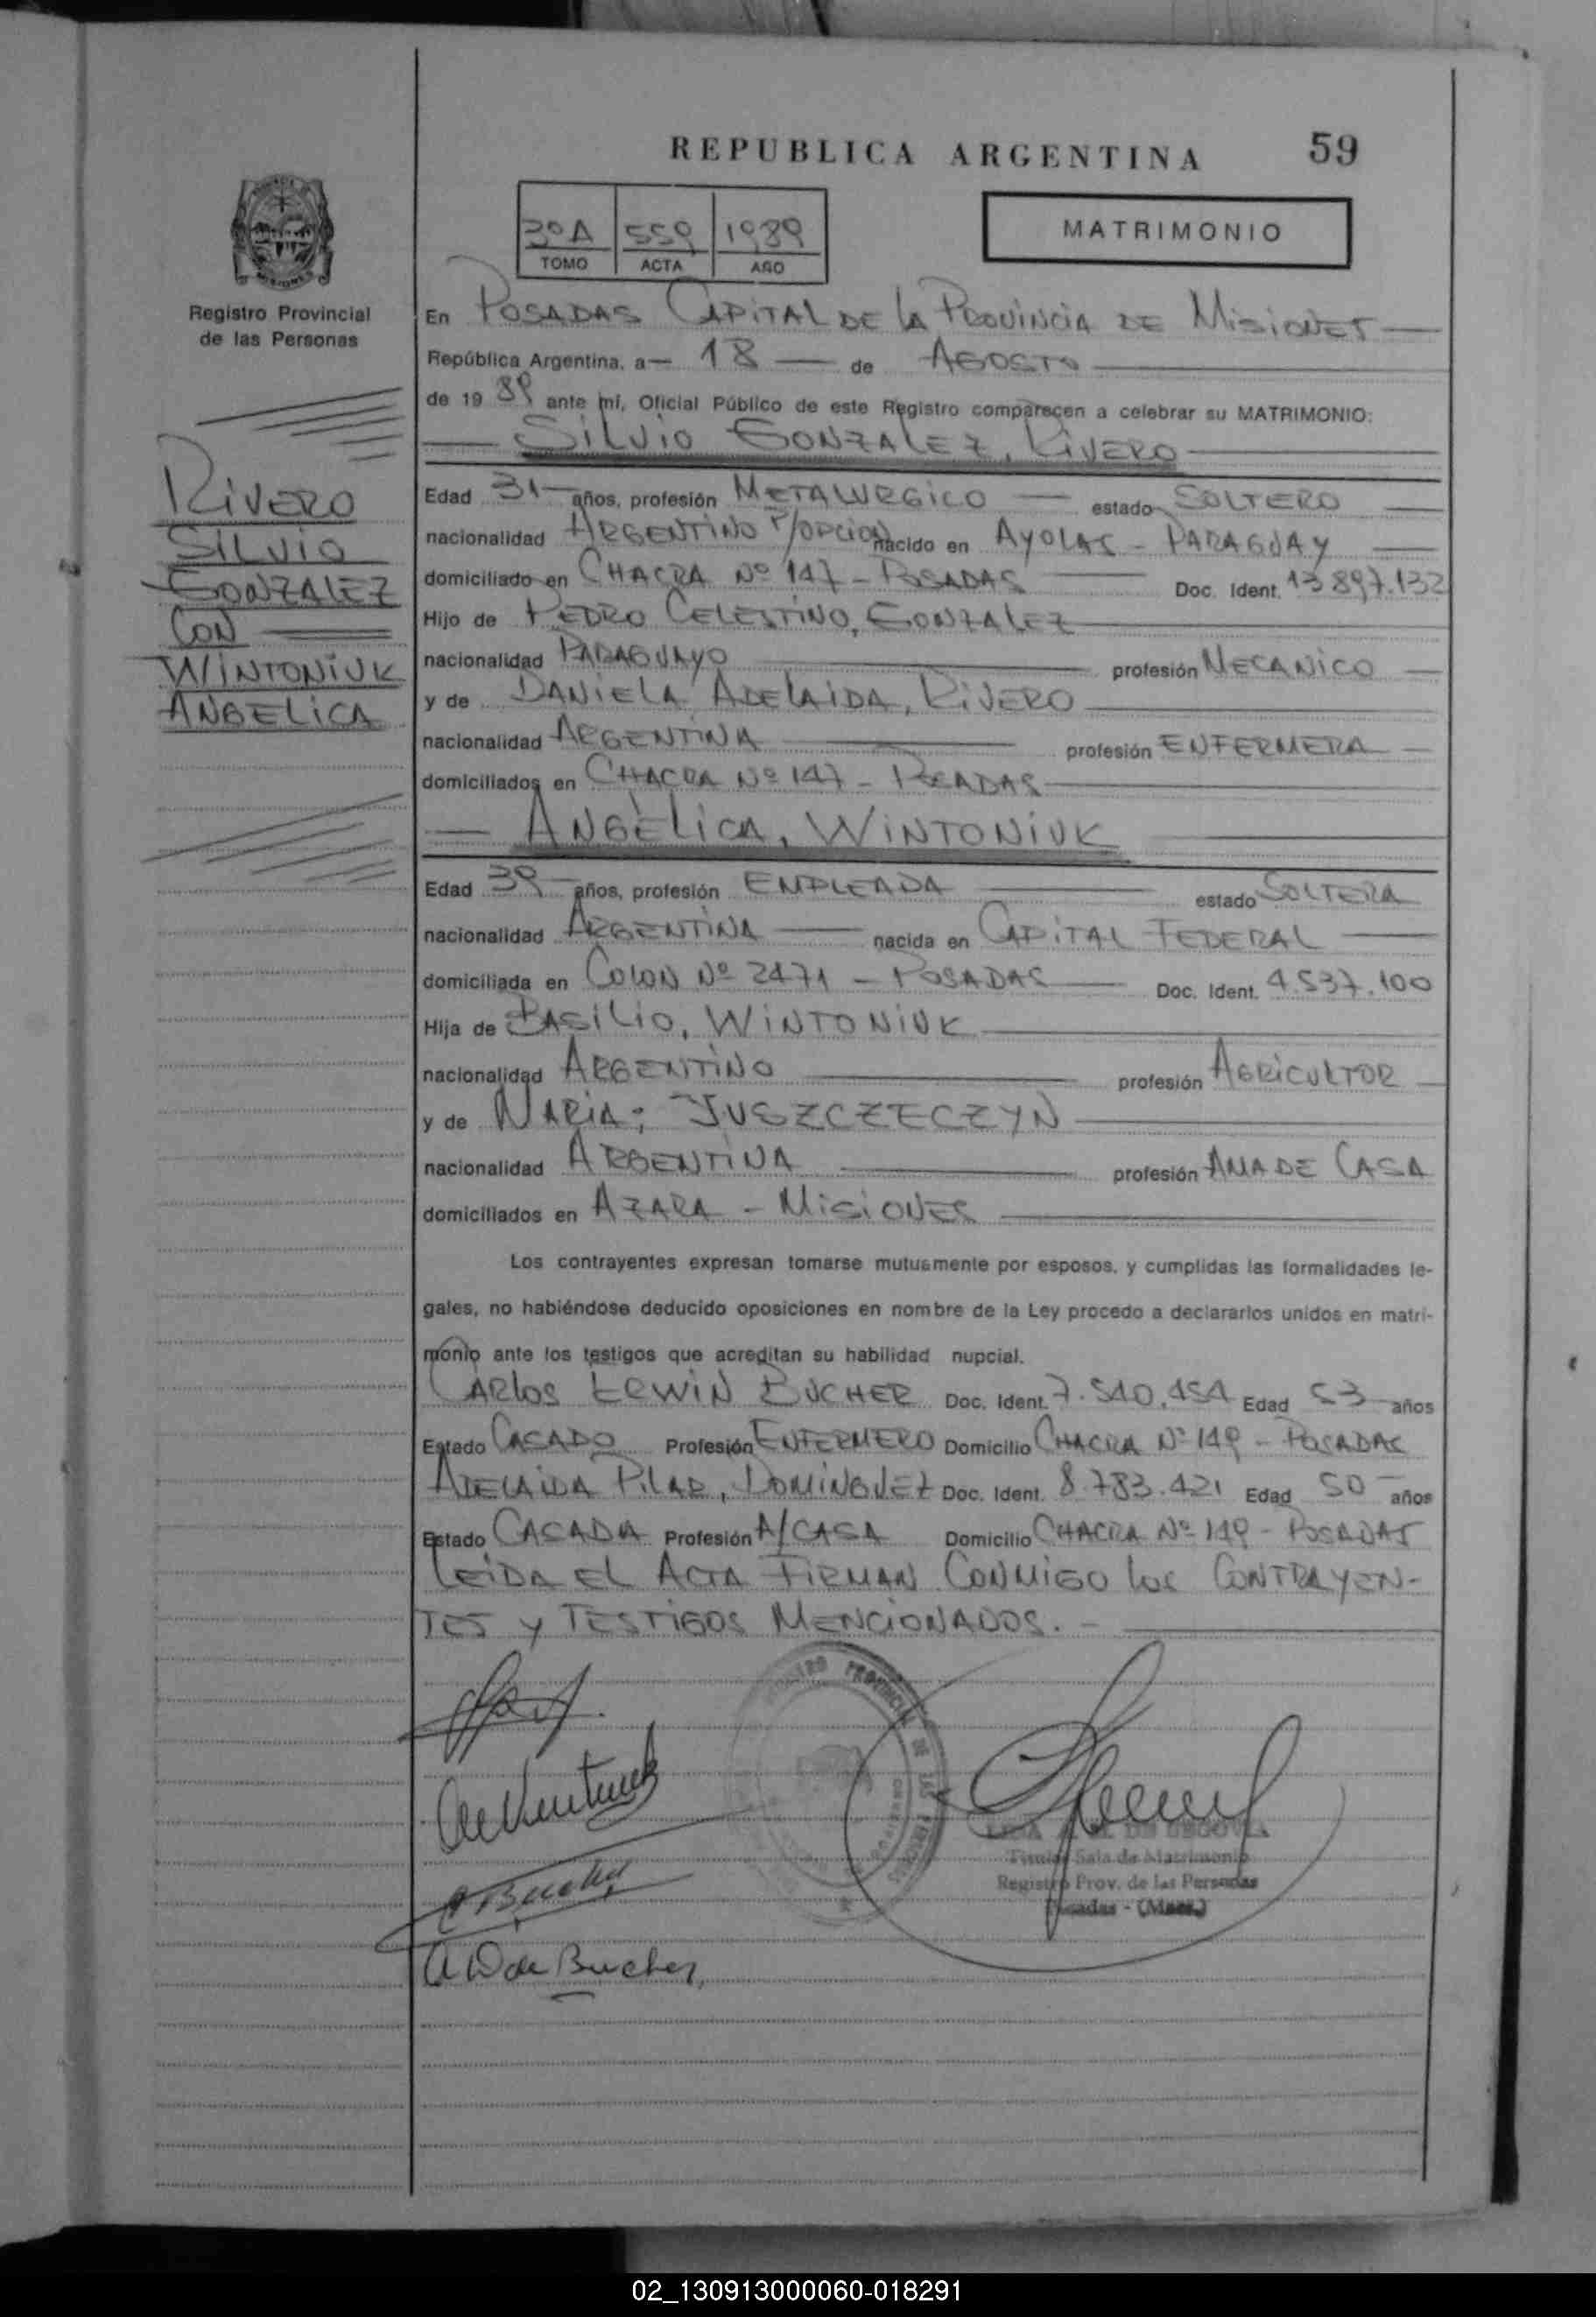 REPUBLICA ARGENTINA 59
3ºA 559 1989
TOMO ACTA AÑO
MATRIMONIO
Registro Provincial
de las Personas
En POSADAS CAPITAL DE LA PROVINCIA DE MISIONES
República Argentina, a 18 de AGOSTO
de 1989 ante mí, Oficial Público de este Registro comparecen a celebrar su MATRIMONIO:
SILVIO GONZALEZ, RIVERO
RIVERO
SILVIO
GONZALEZ
CON
WINTONIUK
ANGELICA
Edad 31 años, profesión METALURGICO estado SOLTERO
nacionalidad ARGENTINO P/OPCION nacido en AYOLAS - PARAGUAY
domiciliado en CHACRA Nº 147 - POSADAS Doc. Ident. 13.897.132
Hijo de PEDRO CELESTINO, GONZALEZ
nacionalidad PARAGUAYO profesión MECANICO
y de DANIELA ADELAIDA, RIVERO
nacionalidad ARGENTINA profesión ENFERMERA
domiciliados en CHACRA Nº 147 - POSADAS
ANGELICA, WINTONIUK
Edad 39 años, profesión EMPLEADA estado SOLTERA
nacionalidad ARGENTINA nacida en CAPITAL FEDERAL
domiciliada en COLON Nº 2471 - POSADAS Doc. Ident. 4.537.100
Hija de BASILIO, WINTONIUK
nacionalidad ARGENTINO profesión AGRICULTOR
y de MARIA; JUSZCZECZYN
nacionalidad ARGENTINA profesión AMA DE CASA
domiciliados en AZARA - MISIONES
Los contrayentes expresan tomarse mutuamente por esposos, y cumplidas las formalidades le-
gales, no habiéndose deducido oposiciones en nombre de la Ley procedo a declararlos unidos en matri-
monio ante los testigos que acreditan su habilidad nupcial.
CARLOS ERWIN BUCHER Doc. Ident. 7.510.454 Edad 53 años
Estado CASADO Profesión ENFERMERO Domicilio CHACRA Nº 149 - POSADAS
ADELAIDA PILAR, DOMINGUEZ Doc. Ident. 8.783.421 Edad 50 años
Estado CASADA Profesión A/CASA Domicilio CHACRA Nº 149 - POSADAS
LEIDA EL ACTA FIRMAN CONMIGO LOS CONTRAYEN-
TES Y TESTIGOS MENCIONADOS. -
DE SEGOVIA
Titular Sala de Matrimonio
Registro Prov. de las Personas
Posadas - (Mnes.)
C Bucher
A D de Bucher
02_130913000060-018291